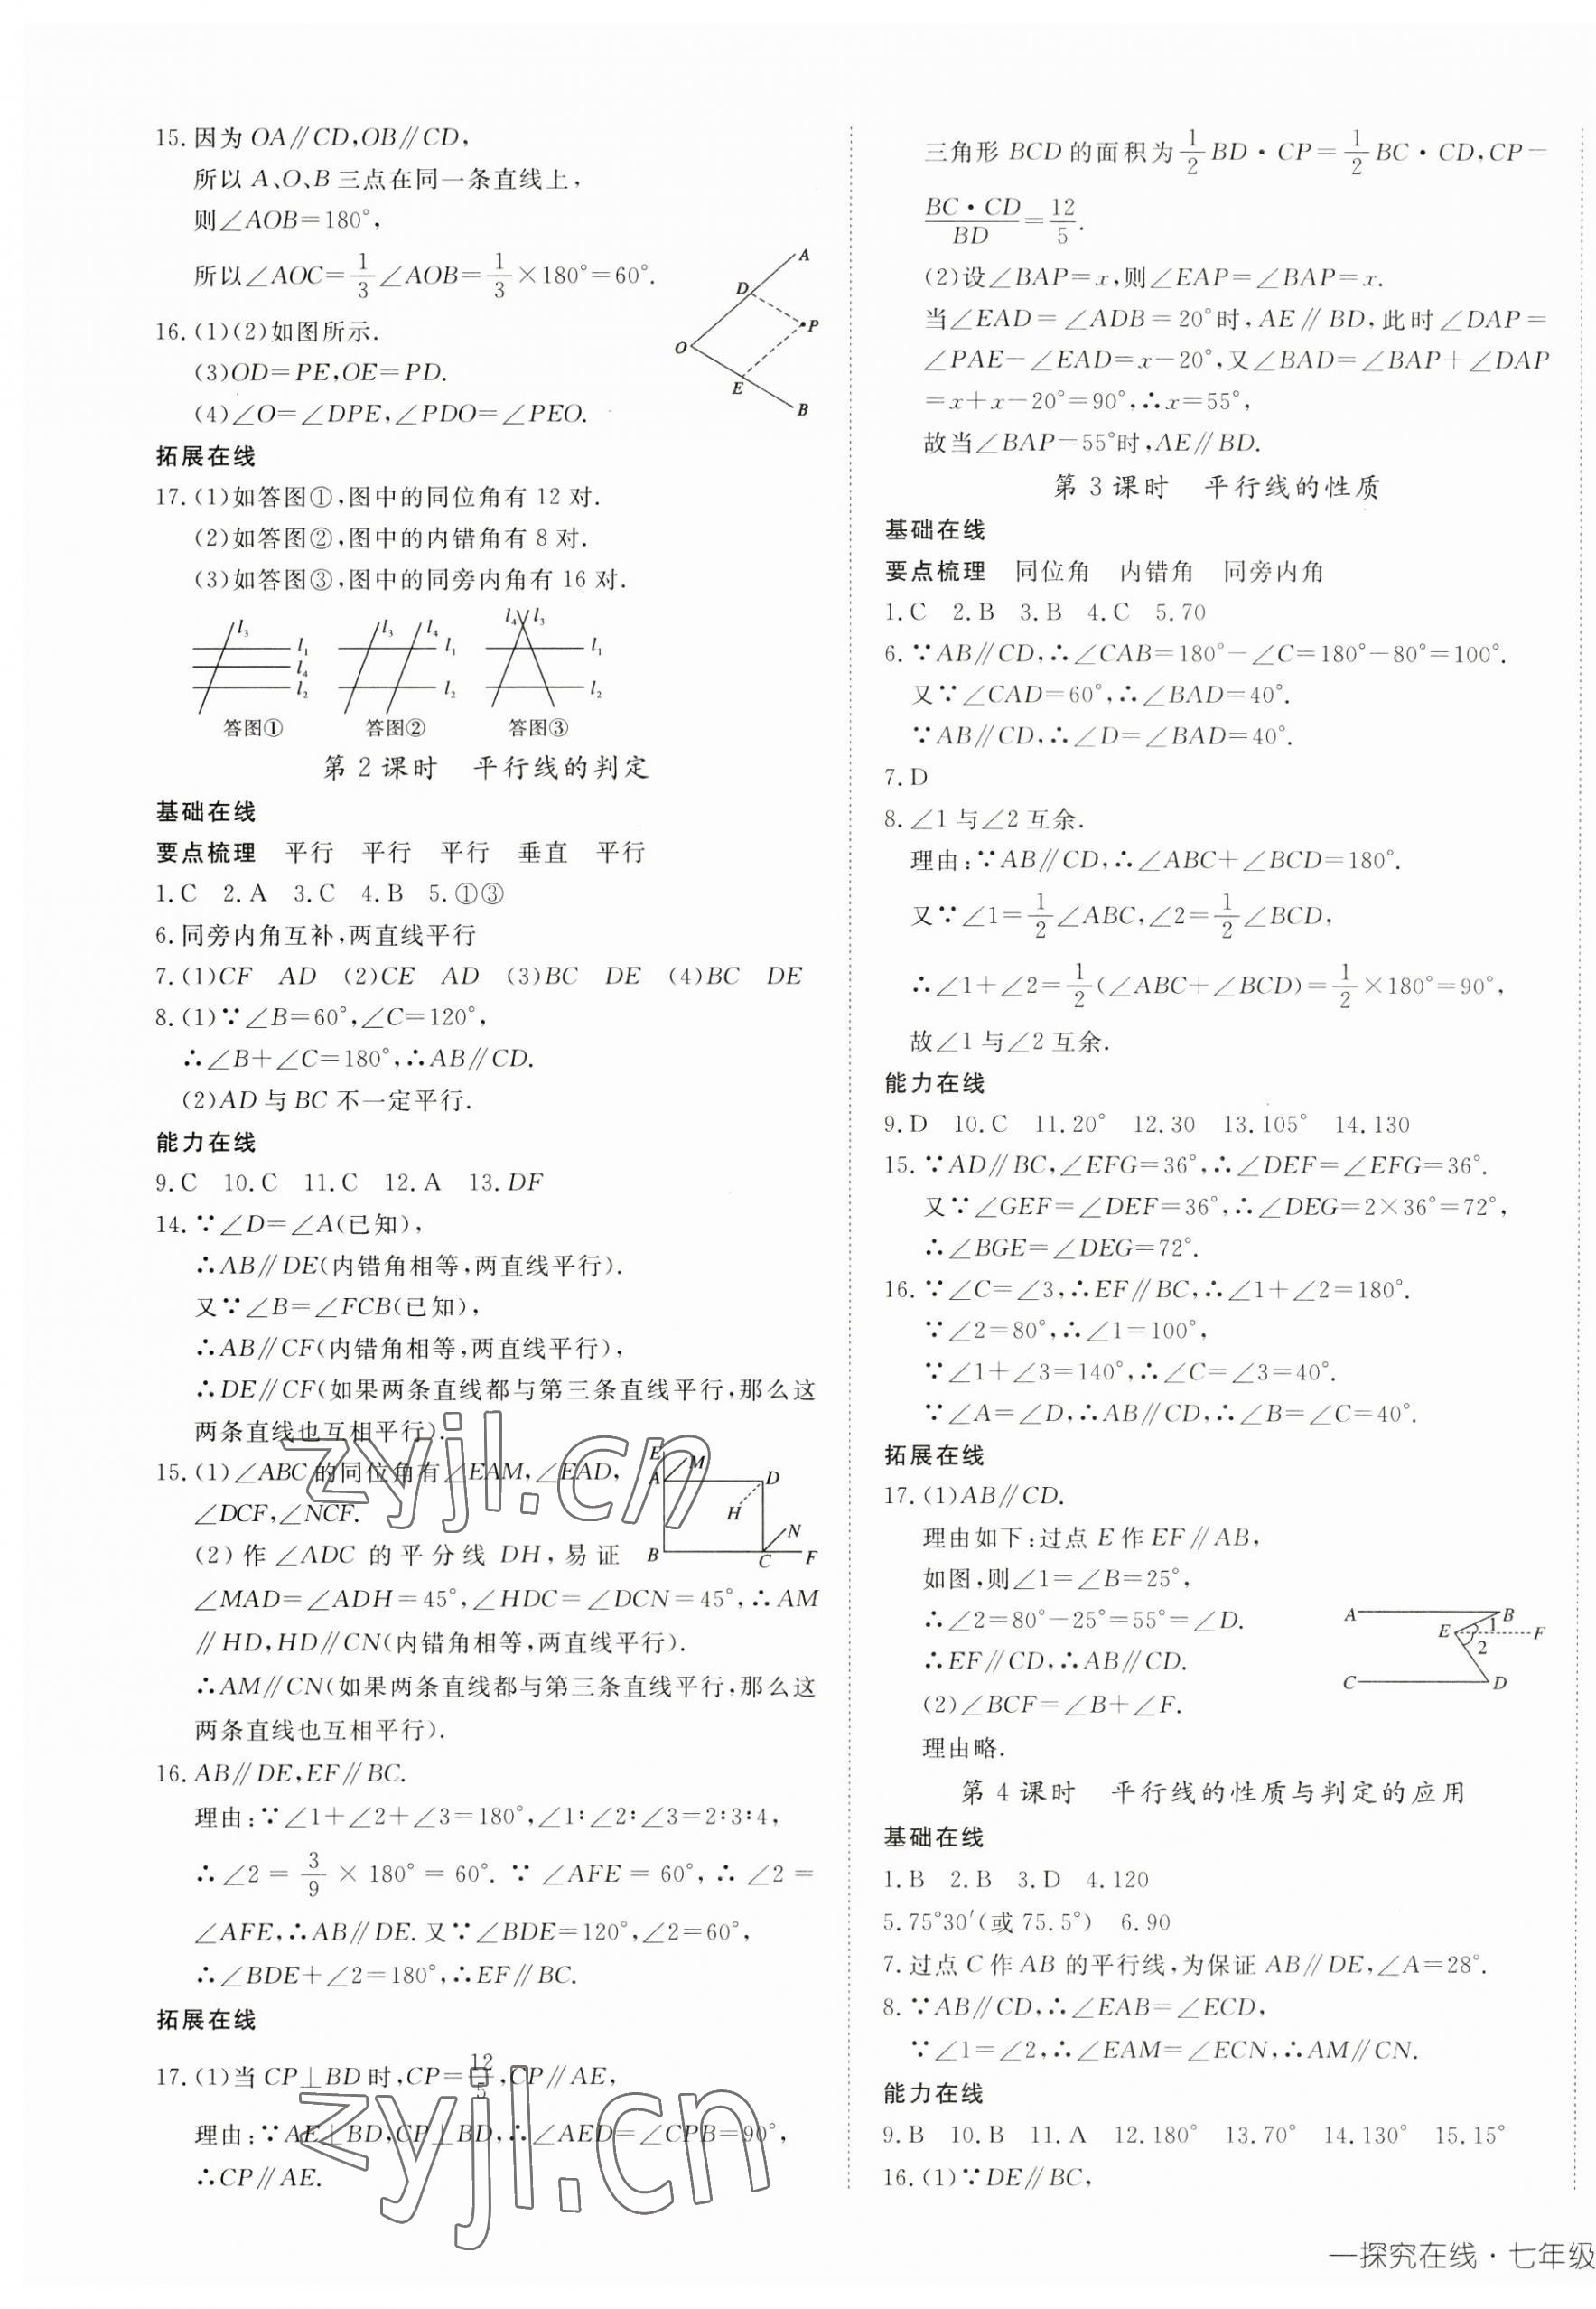 15.因为OA∥CD,OB∥CD,
所以A、O、B三点在同一条直线上,
则∠AOB=180°,
所以∠AOC=1/3∠AOB=1/3×180°=60°.
16.(1)(2)如图所示.
(3)OD=PE,OE=PD.
(4)∠O=∠DPE,∠PDO=∠PEO.
A
D
P
O
E
B
拓展在线
17.(1)如答图①,图中的同位角有12对.
(2)如答图②,图中的内错角有8对.
(3)如答图③,图中的同旁内角有16对.
l₃ l₁ l₄ l₂
l₃ l₄ l₁ l₂
l₄ l₃ l₁ l₂
答图① 答图② 答图③
第2课时 平行线的判定
基础在线
要点梳理 平行 平行 平行 垂直 平行
1.C 2.A 3.C 4.B 5.①③
6.同旁内角互补,两直线平行
7.(1)CF AD (2)CE AD (3)BC DE (4)BC DE
8.(1)∵∠B=60°,∠C=120°,
∴∠B+∠C=180°,∴AB∥CD.
(2)AD与BC不一定平行.
能力在线
9.C 10.C 11.C 12.A 13.DF
14.∵∠D=∠A(已知),
∴AB∥DE(内错角相等,两直线平行).
又∵∠B=∠FCB(已知),
∴AB∥CF(内错角相等,两直线平行),
∴DE∥CF(如果两条直线都与第三条直线平行,那么这
两条直线也互相平行).
15.(1)∠ABC的同位角有∠EAM,∠EAD,
∠DCF,∠NCF.
(2)作∠ADC的平分线DH,易证
∠MAD=∠ADH=45°,∠HDC=∠DCN=45°,∴AM
∥HD,HD∥CN(内错角相等,两直线平行).
∴AM∥CN(如果两条直线都与第三条直线平行,那么这
两条直线也互相平行).
E M
A D
H
N
B C F
16.AB∥DE,EF∥BC.
理由:∵∠1+∠2+∠3=180°,∠1∶∠2∶∠3=2∶3∶4,
∴∠2=3/9×180°=60°.∵∠AFE=60°,∴∠2=
∠AFE,∴AB∥DE.又∵∠BDE=120°,∠2=60°,
∴∠BDE+∠2=180°,∴EF∥BC.
拓展在线
17.(1)当CP⊥BD时,CP=12/5,CP∥AE,
理由:∵AE⊥BD,CP⊥BD,∴∠AED=∠CPB=90°,
∴CP∥AE.
三角形BCD的面积为1/2BD·CP=1/2BC·CD,CP=
BC·CD/BD=12/5.
(2)设∠BAP=x,则∠EAP=∠BAP=x.
当∠EAD=∠ADB=20°时,AE∥BD,此时∠DAP=
∠PAE-∠EAD=x-20°,又∠BAD=∠BAP+∠DAP
=x+x-20°=90°,∴x=55°,
故当∠BAP=55°时,AE∥BD.
第3课时 平行线的性质
基础在线
要点梳理 同位角 内错角 同旁内角
1.C 2.B 3.B 4.C 5.70
6.∵AB∥CD,∴∠CAB=180°-∠C=180°-80°=100°.
又∵∠CAD=60°,∴∠BAD=40°.
∵AB∥CD,∴∠D=∠BAD=40°.
7.D
8.∠1与∠2互余.
理由:∵AB∥CD,∴∠ABC+∠BCD=180°.
又∵∠1=1/2∠ABC,∠2=1/2∠BCD,
∴∠1+∠2=1/2(∠ABC+∠BCD)=1/2×180°=90°,
故∠1与∠2互余.
能力在线
9.D 10.C 11.20° 12.30 13.105° 14.130
15.∵AD∥BC,∠EFG=36°,∴∠DEF=∠EFG=36°.
又∵∠GEF=∠DEF=36°,∴∠DEG=2×36°=72°,
∴∠BGE=∠DEG=72°.
16.∵∠C=∠3,∴EF∥BC,∴∠1+∠2=180°.
∵∠2=80°,∴∠1=100°,
∵∠1+∠3=140°,∴∠C=∠3=40°.
∵∠A=∠D,∴AB∥CD,∴∠B=∠C=40°.
拓展在线
17.(1)AB∥CD.
理由如下:过点E作EF∥AB,
如图,则∠1=∠B=25°,
∴∠2=80°-25°=55°=∠D.
∴EF∥CD,∴AB∥CD.
(2)∠BCF=∠B+∠F.
理由略.
A B
E 1 F
2
C D
第4课时 平行线的性质与判定的应用
基础在线
1.B 2.B 3.D 4.120
5.75°30′(或75.5°) 6.90
7.过点C作AB的平行线,为保证AB∥DE,∠A=28°.
8.∵AB∥CD,∴∠EAB=∠ECD,
∵∠1=∠2,∴∠EAM=∠ECN,∴AM∥CN.
能力在线
9.B 10.B 11.A 12.180° 13.70° 14.130° 15.15°
16.(1)∵DE∥BC,
一探究在线·七年级
zyjl.cn
zyjl.cn